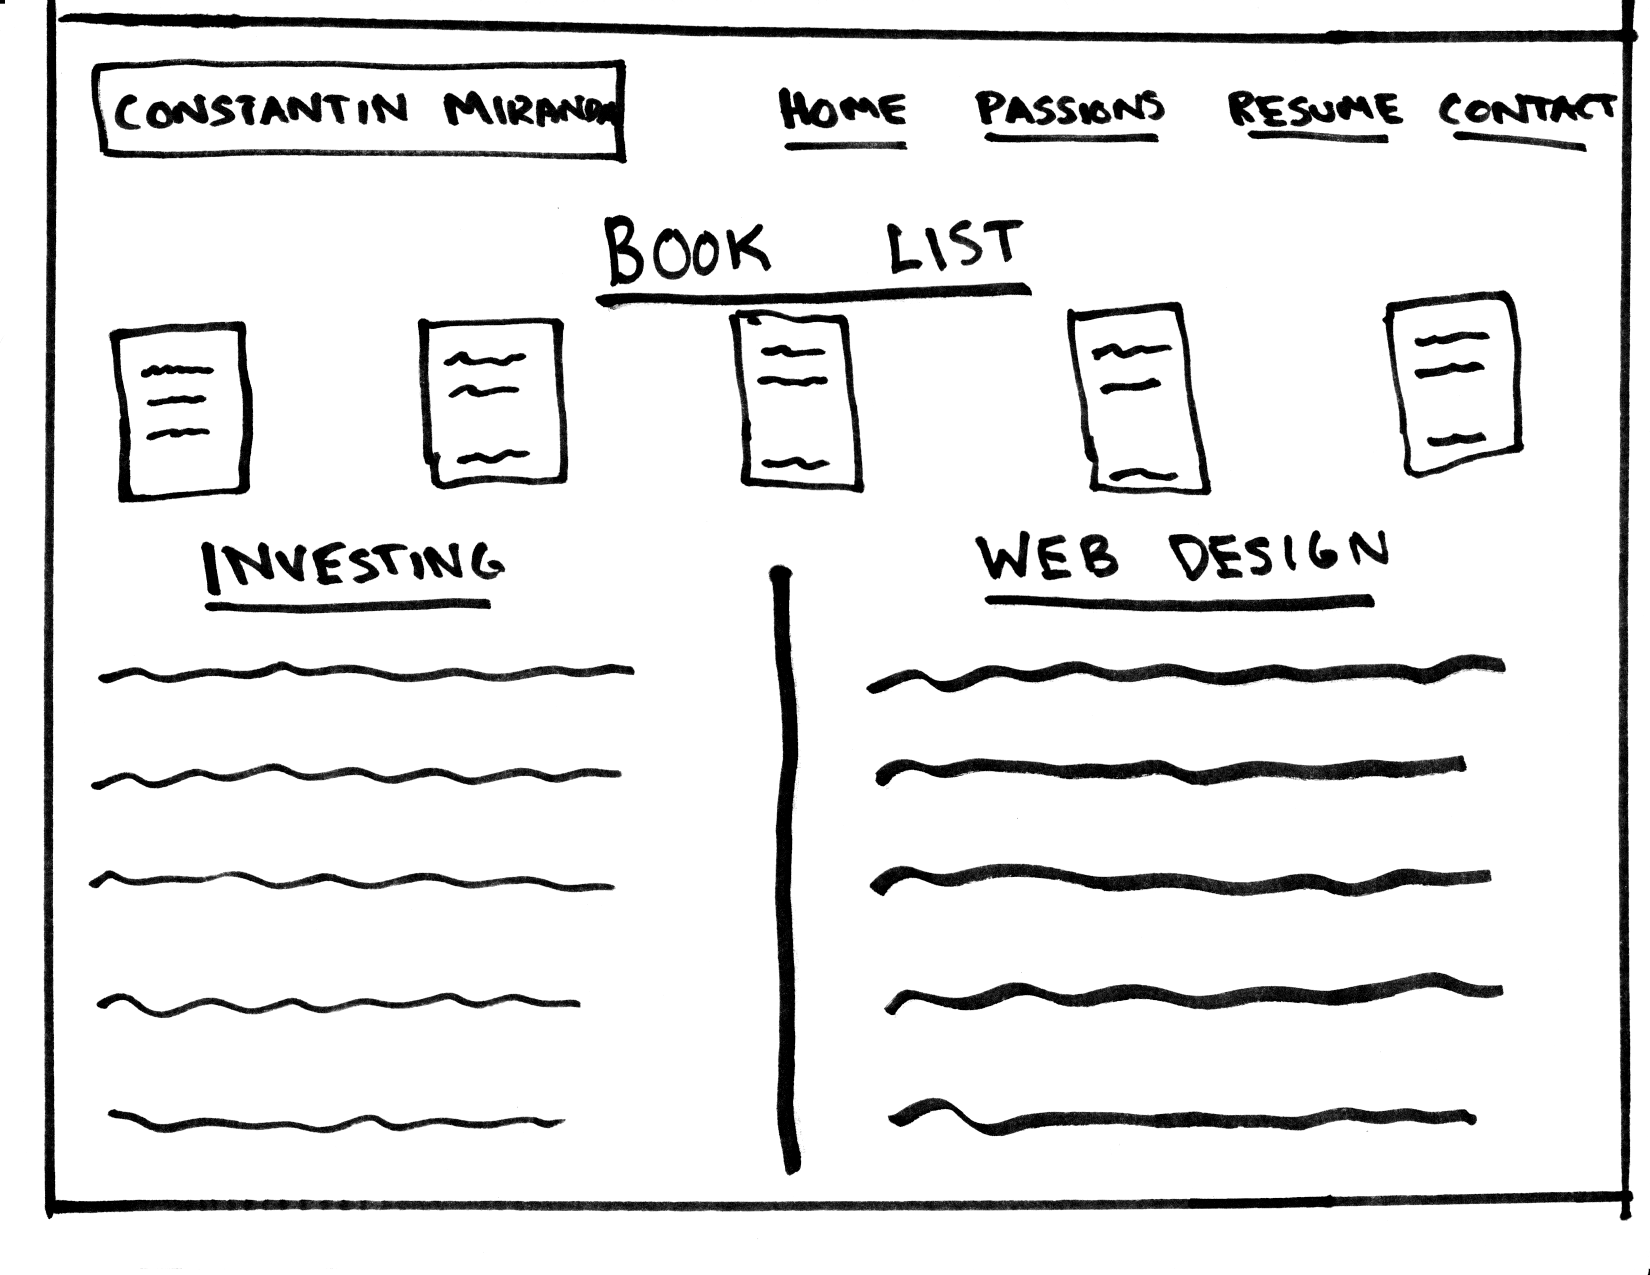 CONSTANTIN MIRANDA
HOME PASSIONS RESUME CONTACT
BOOK LIST
INVESTING
WEB DESIGN